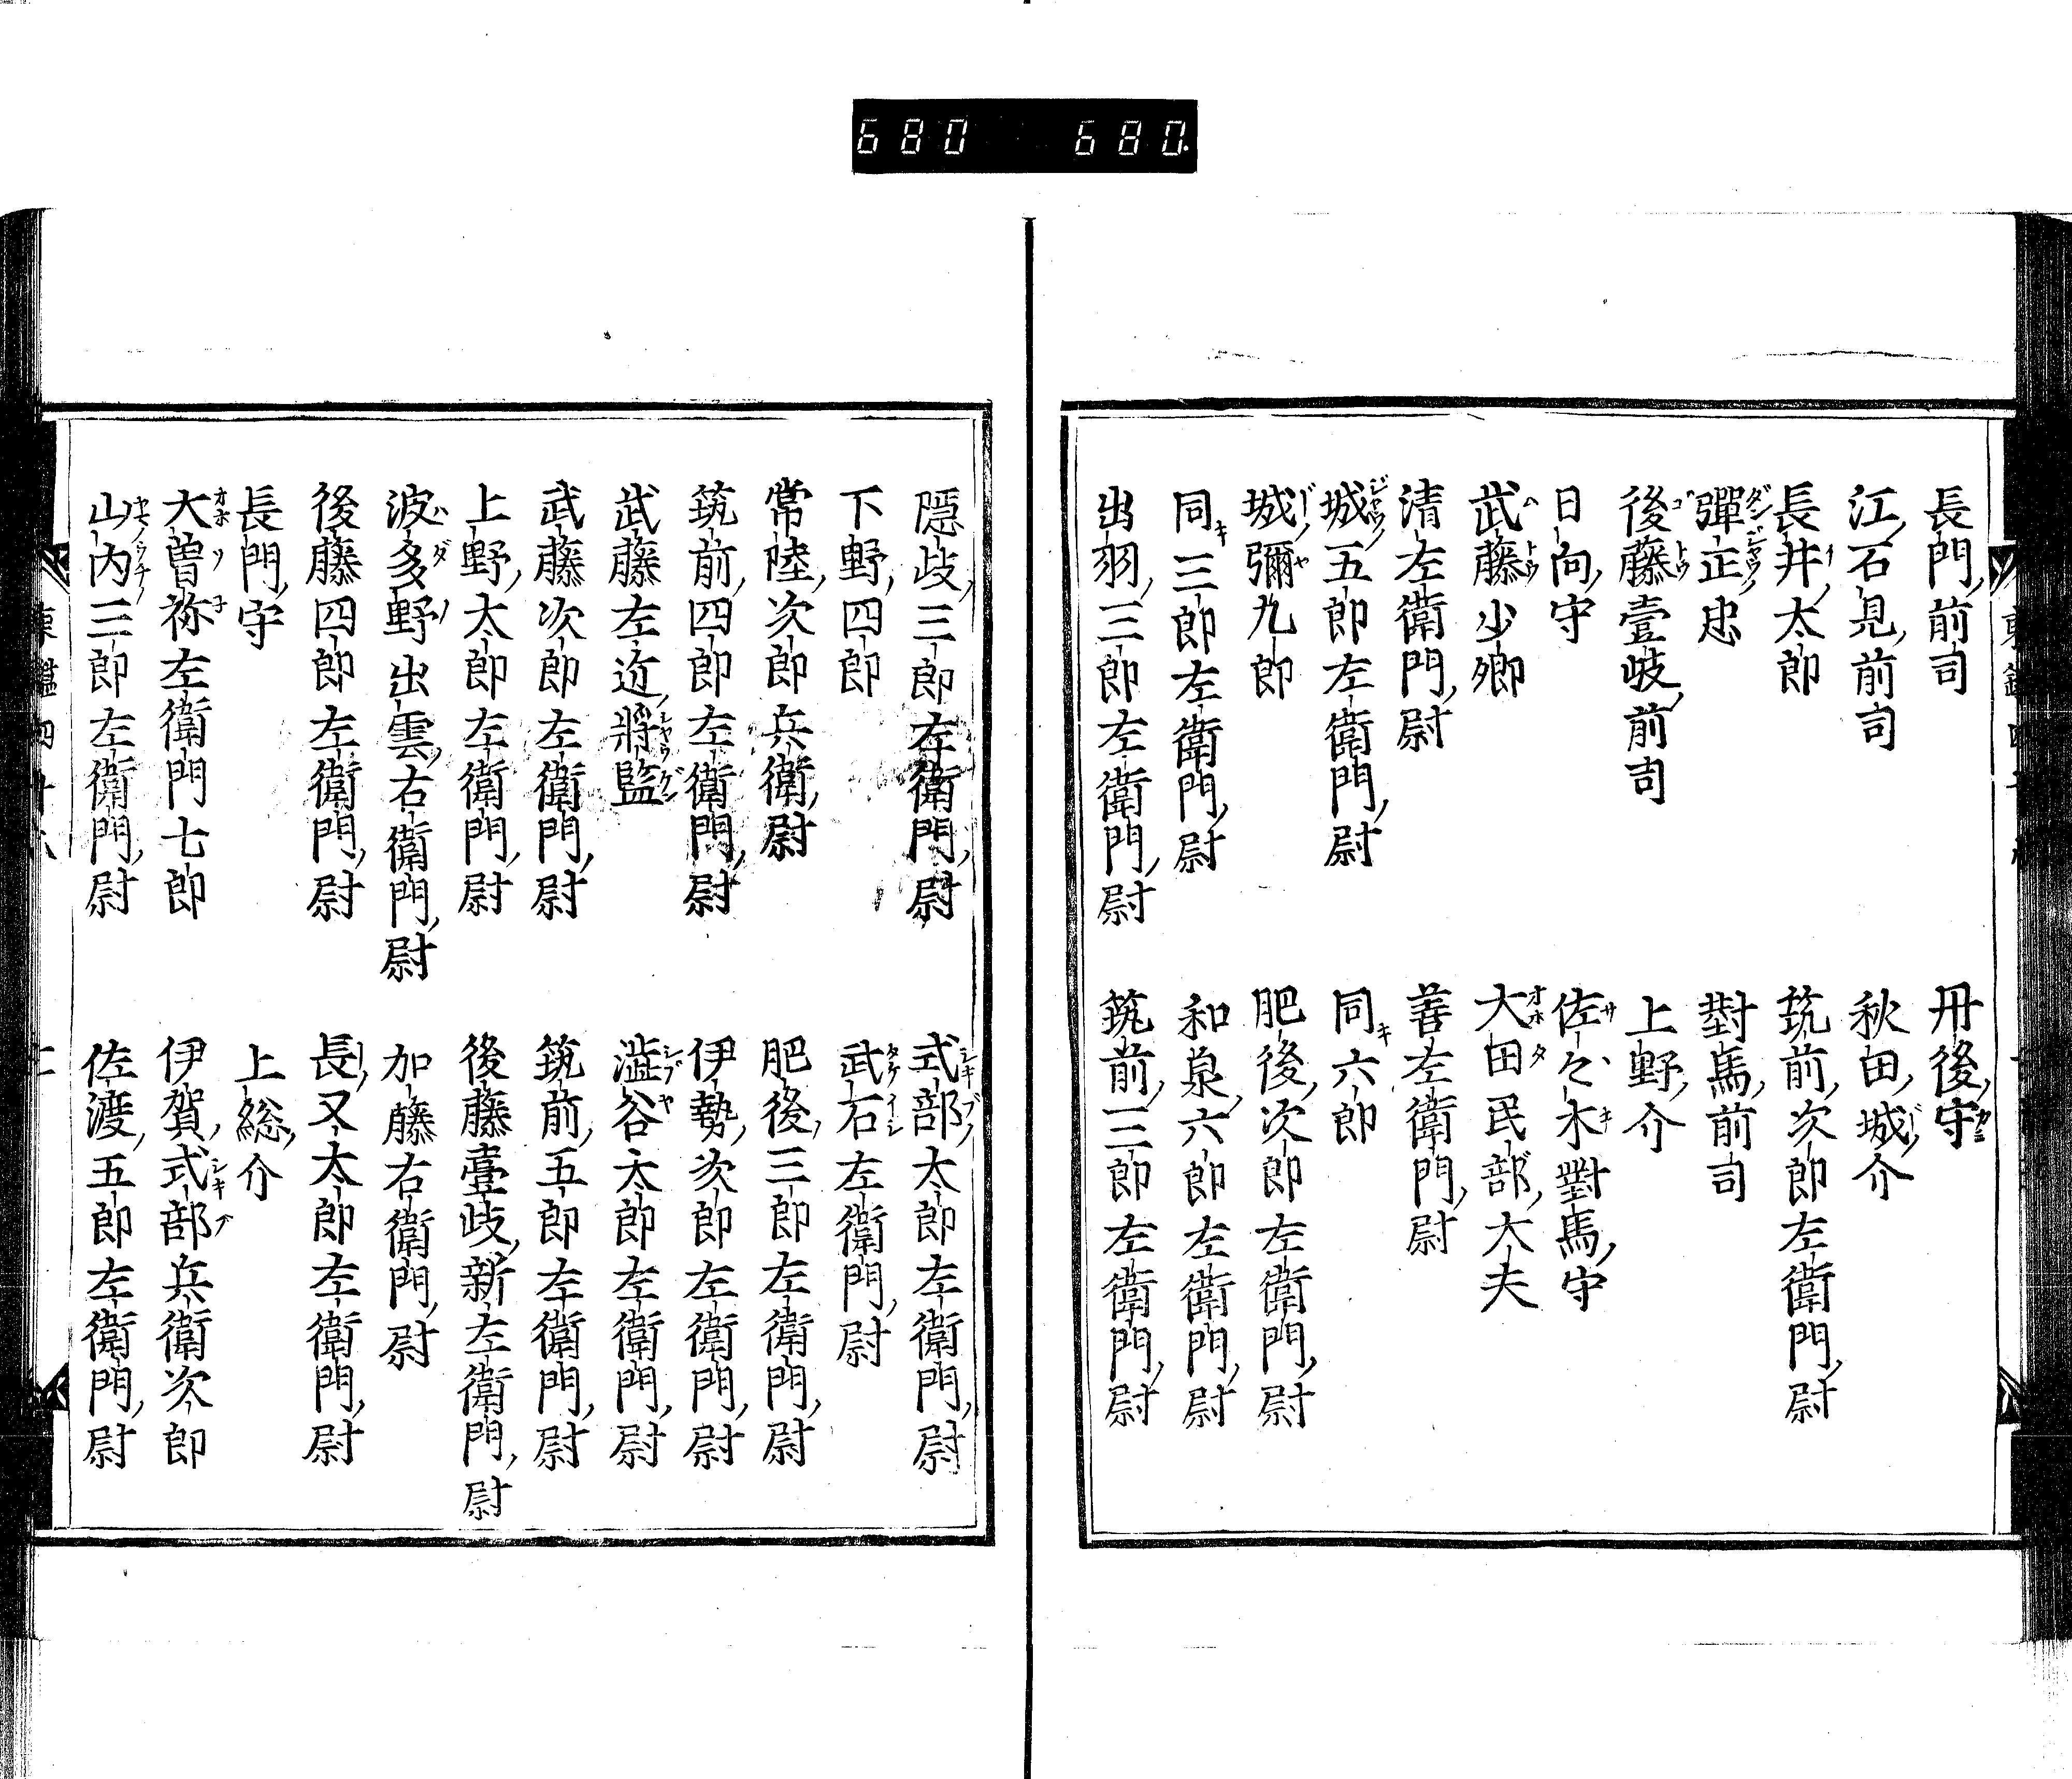 680 680
長門前司 丹後守
江石見前司 秋田城介
長井太郎 筑前次郎左衛門尉
彈正忠 對馬前司
後藤壹岐前司 上野介
日向守 佐々木對馬守
武藤少卿 大田民部大夫
清左衛門尉 善左衛門尉
城五郎左衛門尉 同六郎
城彌九郎 肥後次郎左衛門尉
同三郎左衛門尉 和泉六郎左衛門尉
出羽三郎左衛門尉 筑前三郎左衛門尉
隠岐三郎左衛門尉 式部太郎左衛門尉
下野四郎 武石左衛門尉
常陸次郎兵衛尉 肥後三郎左衛門尉
筑前四郎左衛門尉 伊勢次郎左衛門尉
武藤左近將監 澁谷太郎左衛門尉
武藤次郎左衛門尉 筑前五郎左衛門尉
上野太郎左衛門尉 後藤壹岐新左衛門尉
波多野出雲右衛門尉 加藤右衛門尉
後藤四郎左衛門尉 長又太郎左衛門尉
長門守 上総介
大曽祢左衛門七郎 伊賀式部兵衛次郎
山内三郎左衛門尉 佐渡五郎左衛門尉